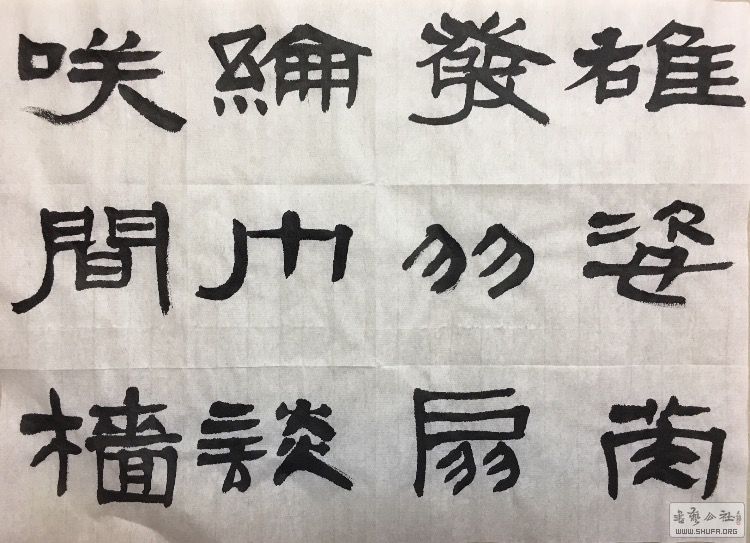 雄姿英
發羽扇
綸巾談
咲間檣
書藝公社
WWW.SHUFA.ORG